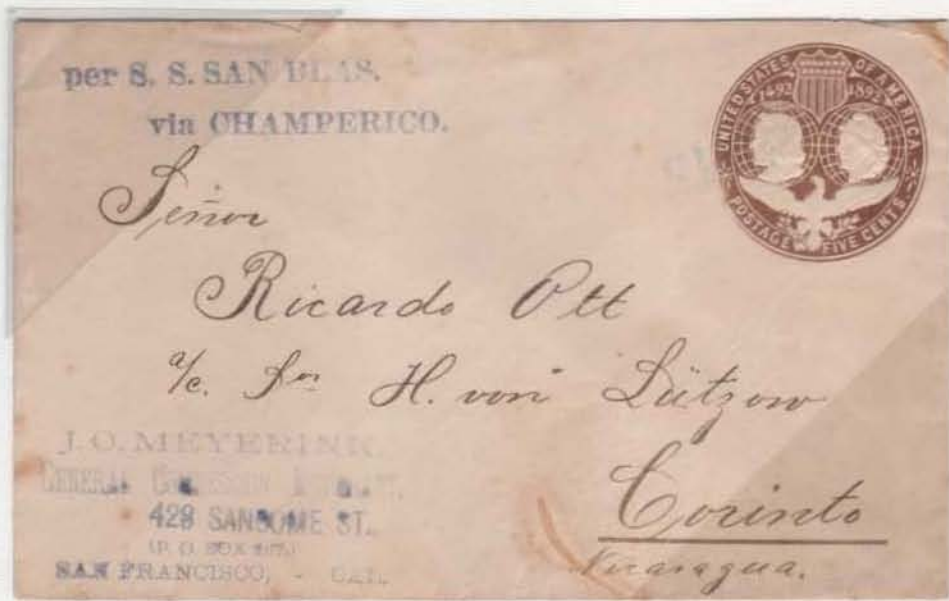 per S. S. SAN BLAS.
via CHAMPERICO.
UNITED STATES OF AMERICA
1492 1892
POSTAGE FIVE CENTS.
Señor
Ricardo Ott
a/c. Sor H. von Lützow
Corinto
Nicaragua.
J. O. MEYERINK.
GENERAL COMMISSION
429 SANSOME ST.
(P. O. BOX
SAN FRANCISCO, - CAL.